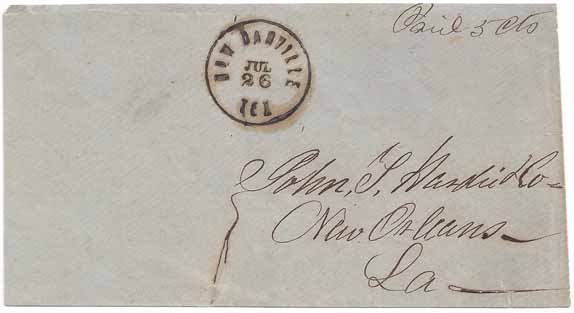 Paid 5 cts
NEW DANVILLE
JUL
26
TEX
John, T, Hardie & Co
New Orleans
La